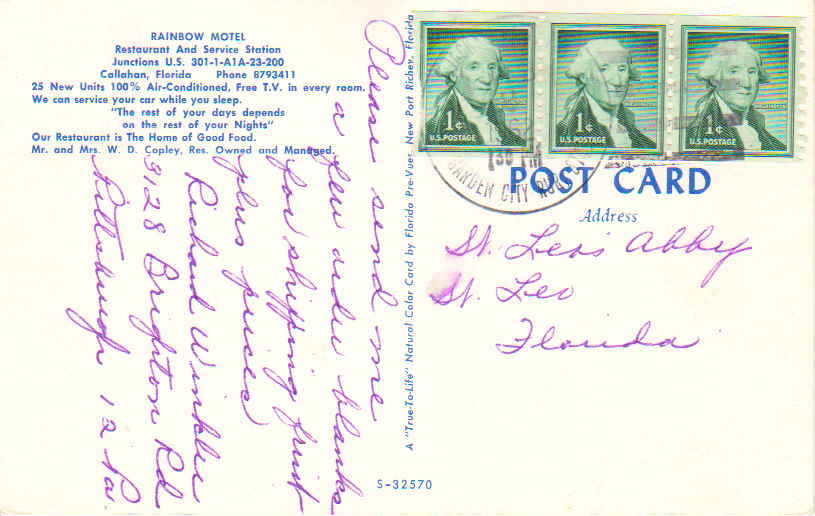 RAINBOW MOTEL
Restaurant And Service Station
Junctions U.S. 301-1-A1A-23-200
Callahan, Florida Phone 8793411
25 New Units 100% Air-Conditioned, Free T.V. in every room.
We can service your car while you sleep.
"The rest of your days depends
on the rest of your Nights"
Our Restaurant is The Home of Good Food.
Mr. and Mrs. W. D. Copley, Res. Owned and Managed.
Please send me
a few order blanks
for shipping fruit
plus prices
Richard Winkler
3128 Brighton Rd
Pittsburgh 12 Pa.
A "True-To-Life" Natural Color Card by Florida Pre-Vues New Port Richey, Florida
S-32570
1¢
U.S. POSTAGE
1¢
U.S. POSTAGE
1¢
U.S. POSTAGE
GARDEN CITY
POST CARD
Address
St. Leo's Abby
St. Leo
Florida